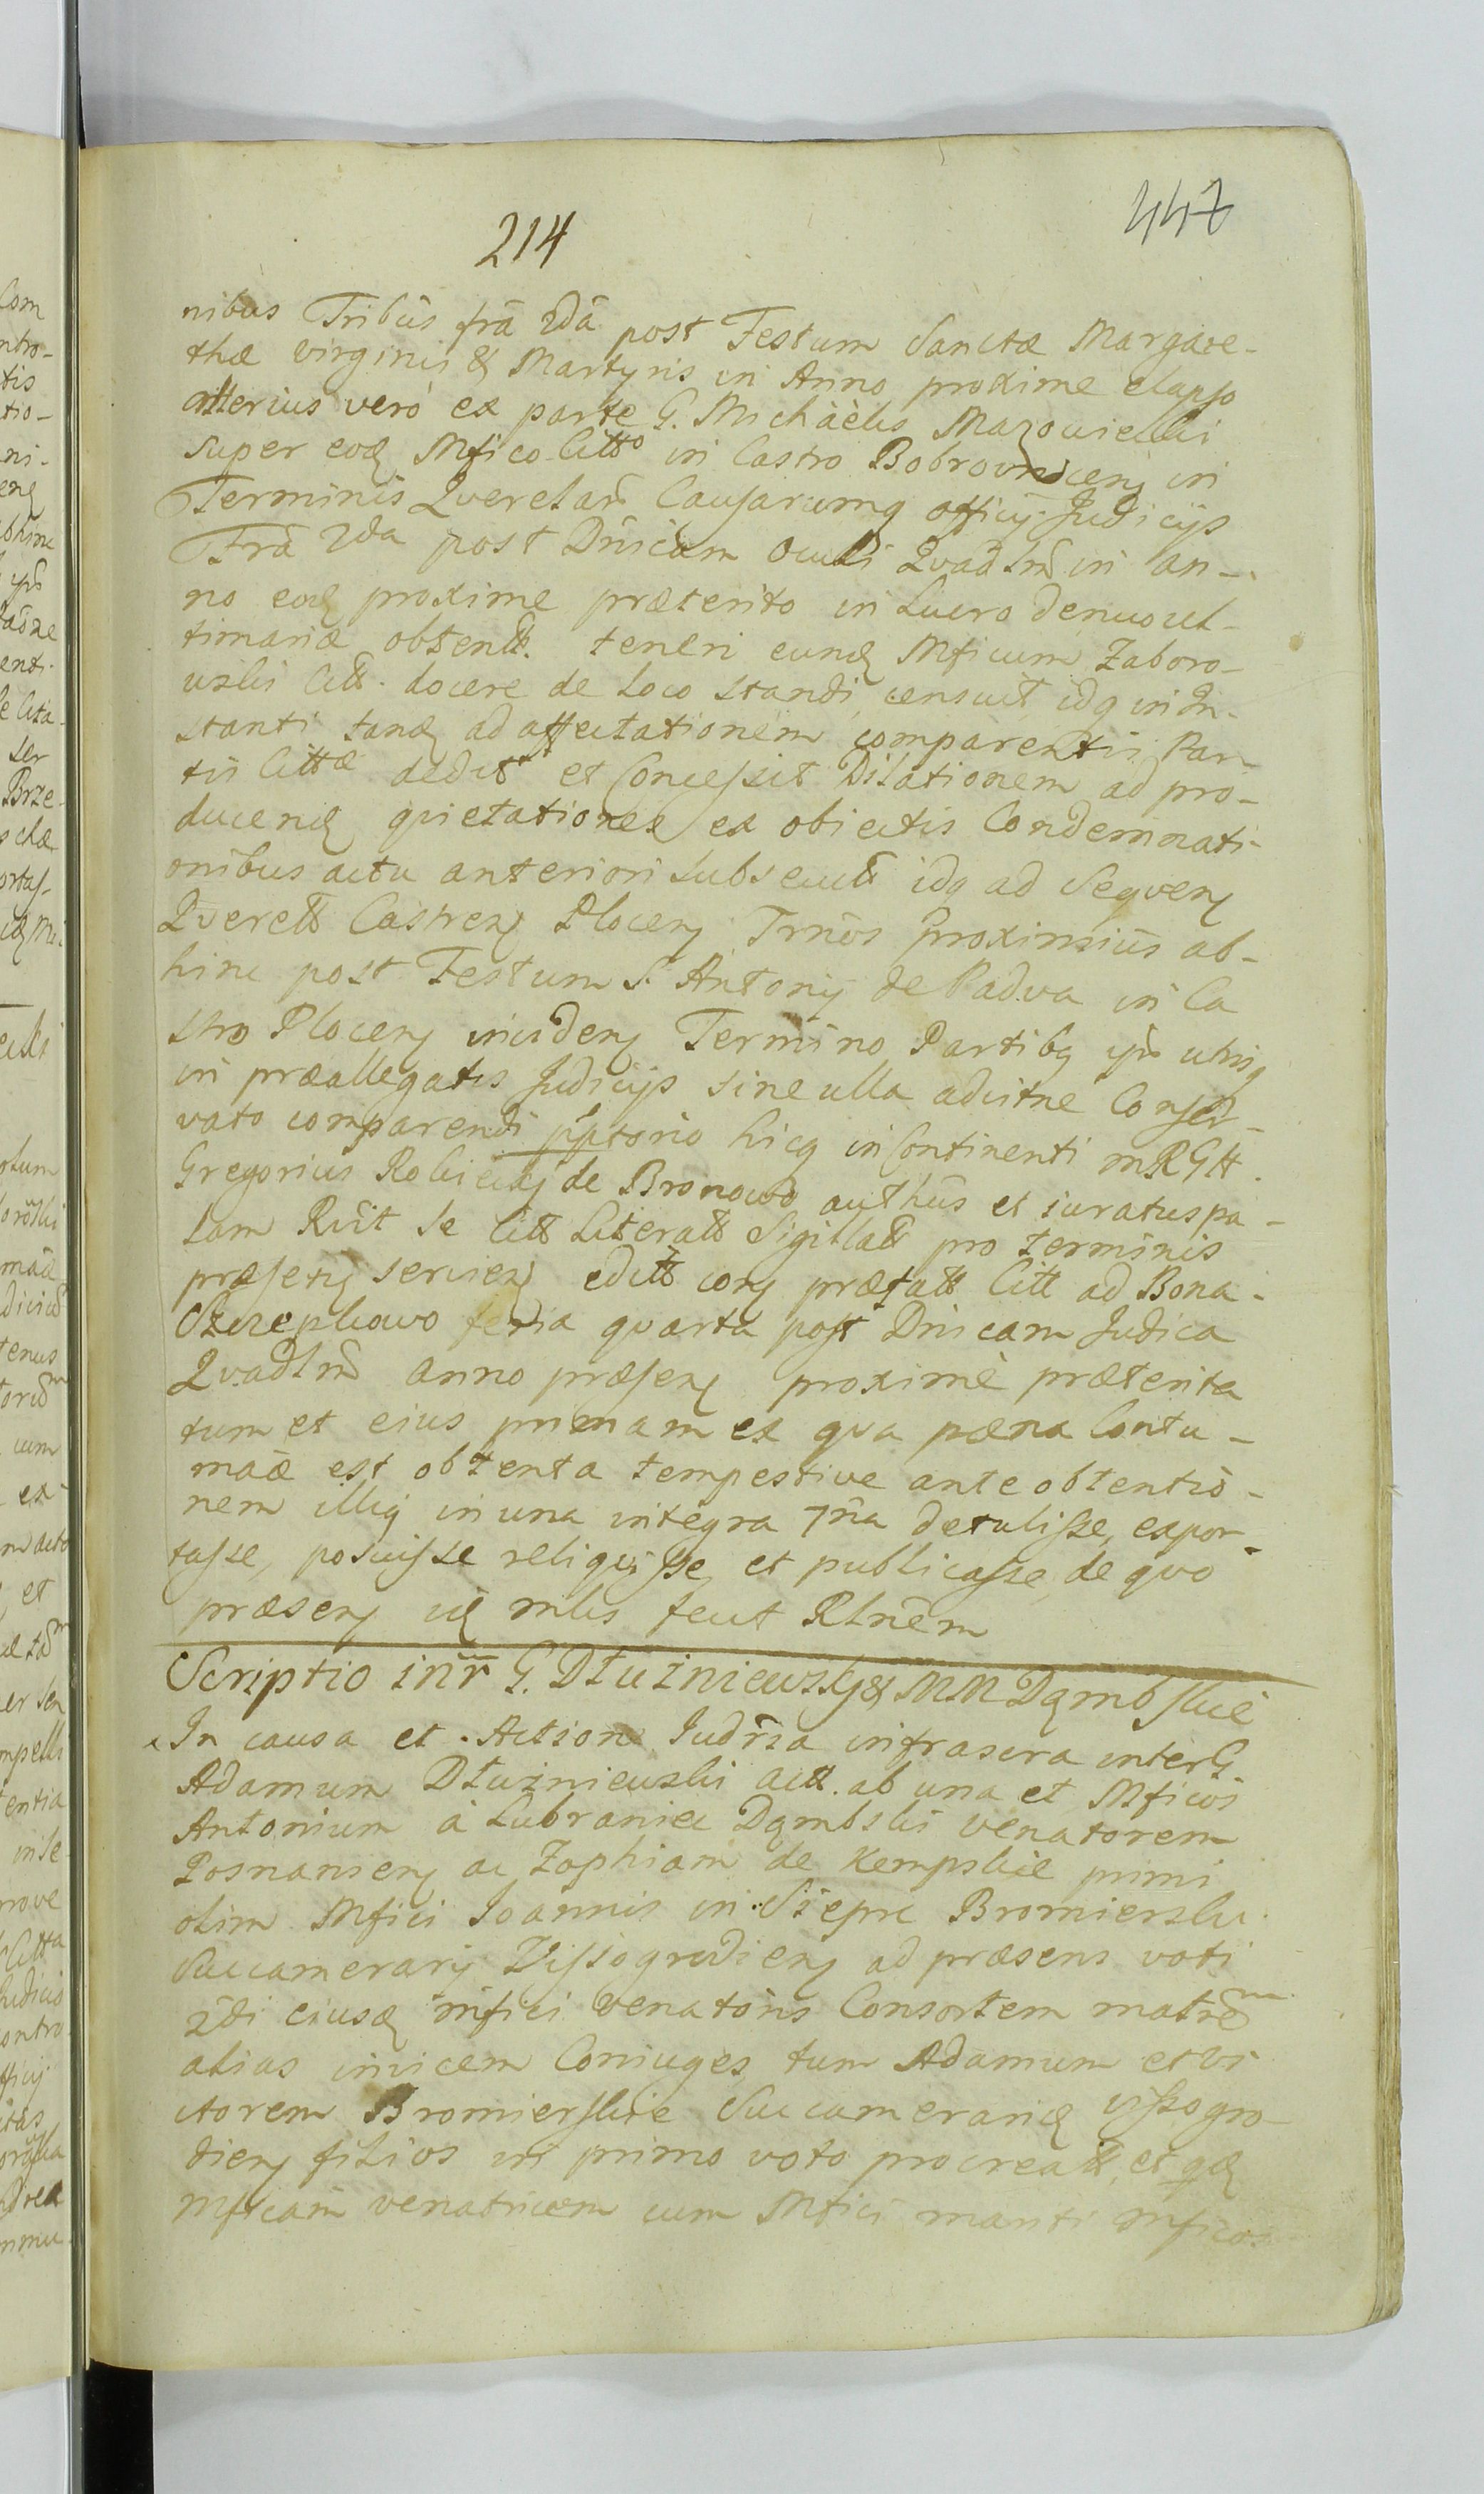 447
214
nibus Tribus frã 2dã post Festum Sanctæ Margare-
thæ virginis & Martyris in Anno proxime elapso
alterius verò ex parte G. Michàèlis Mazowiecki
super eoq Mfico Citto in Castro Bobrovnicenj in
Terminis Qverelar̃ Causarumq officij Judicijs
Frã 2da post Dnicam Oculi Qvad̃lm̃ in an-
no eoq proxime præterito in Lucro denuo ul-
timariæ obtentt. teneri eunq Mficum Zaboro-
wski Citt. docere de Loco standi, censuit, idq in In-
stanti tanq ad affectationem comparentis Par
tis Cittæ dedit et Concessit Dilationem ad pro-
ducenq qvietationes ex obiectis Condemnati-
onibus actu anteriori subsecutt idq ad Seqvenj
Qverett Castrenj Plocenj Trnos proximiùs ab-
hinc post Festum S. Antonij de Padva in Ca
stro Plocenj inciden̄j Termino Partibq ip̃s utrisq
in præallegatis Judicijs sine ulla adcitne Conser-
vato comparendi pp̃torio hicq in Continenti MRGtt.
Gregorius Robieckj de Bronowo authùs et iuratus pa-
lam Rvit se Citt Literatt Sigillatt pro terminis
præsenj servienj editt conj præfatt Citt ad Bona-
feria qvarta post Dnicam Judica
Qvad̃lm̃ anno præsenj proximè præterita
tum et eius primam ex qva pæna Contu-
mãæ est obtenta tempestive ante obtentiò-
nem illiq in una integra 7ña detulisse, expor-
tasse, posuisse reliqvisse, et publicasse, de qvo
præsenj iq mlis fecit Rlnẽm
Scriptio inr̃ G. Dłużniewskj & MM Dąmbskie
In causa et Actione Judr̃ia infrascra inter G.
Adamum Dłużniewski actt. ab una et Mficos
Antonium à Lubraniec Dąmbski venatorem
Posnansenj ac Zophiam de Kempskie primi
olim Mfici Joannis in Siepre Bromierski
Succamerarij Vissogrodienj ad præsens voti
2di eiusq mfici venatoris Consortem
alias invicem Coniuges, tum Adamum et Vi
ctorem Bromierskie Succamerariq vissogro-
dienj filios in primo voto procreatt, et
Mficam venatricem cum Mfici mariti mficos